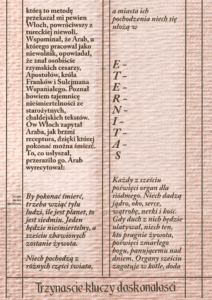 którą to metodę
przekazał mi pewien
Włoch, powróciwszy z
tureckiej niewoli.
Wspominał, że Arab, u
którego pracował jako
niewolnik, opowiadał,
że znał osobiście
rzymskich cesarzy,
Apostołów, króla
Franków i Sulejmana
Wspaniałego. Poznał
bowiem tajemnicę
nieśmiertelności ze
starożytnych,
chaldejskich tekstów.
Ów Włoch zapytał
Araba, jak brzmi
receptura, dzięki której
pokonać można śmierć.
To, co usłyszał,
przeraziło go. Arab
wyrecytował:
By pokonać śmierć,
trzeba wziąć tylu
ludzi, ile jest planet, to
jest siedmiu. Jeden
będzie nieśmiertelny, a
sześciu zbawionych
zostanie żywota.
Niech pochodzą z
różnych części świata,
a miasta ich
pochodzenia niech się
ułożą w
E-
T-
E-
R-
N-
I-
T-
A-
S
Każdy z sześciu
poświęci organ dla
siódmego. Niech dadzą
jądro, oko, serce,
wątrobę, nerkę i kość.
Gdy duch z nich będzie
ulatywał, niech ten,
kto pragnie żywota,
poświęci zmarłego
bogu, panującemu nad
dniem. Organy sześciu
zagotuje w kotle, doda
Trzynaście kluczy doskonałości